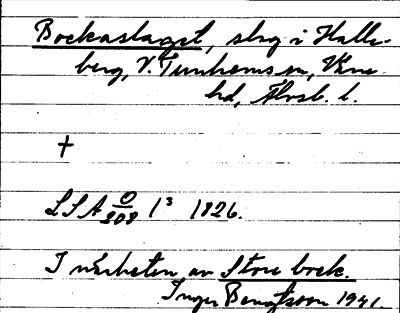 Bockaslaget, skog i Halle-
berg, V. Tunhems sn, Väne
hd, Älvsb. l.
†
LSA O/808 1³ 1826.
I närheten av Store bock.
Inger Bengtsson 1941.